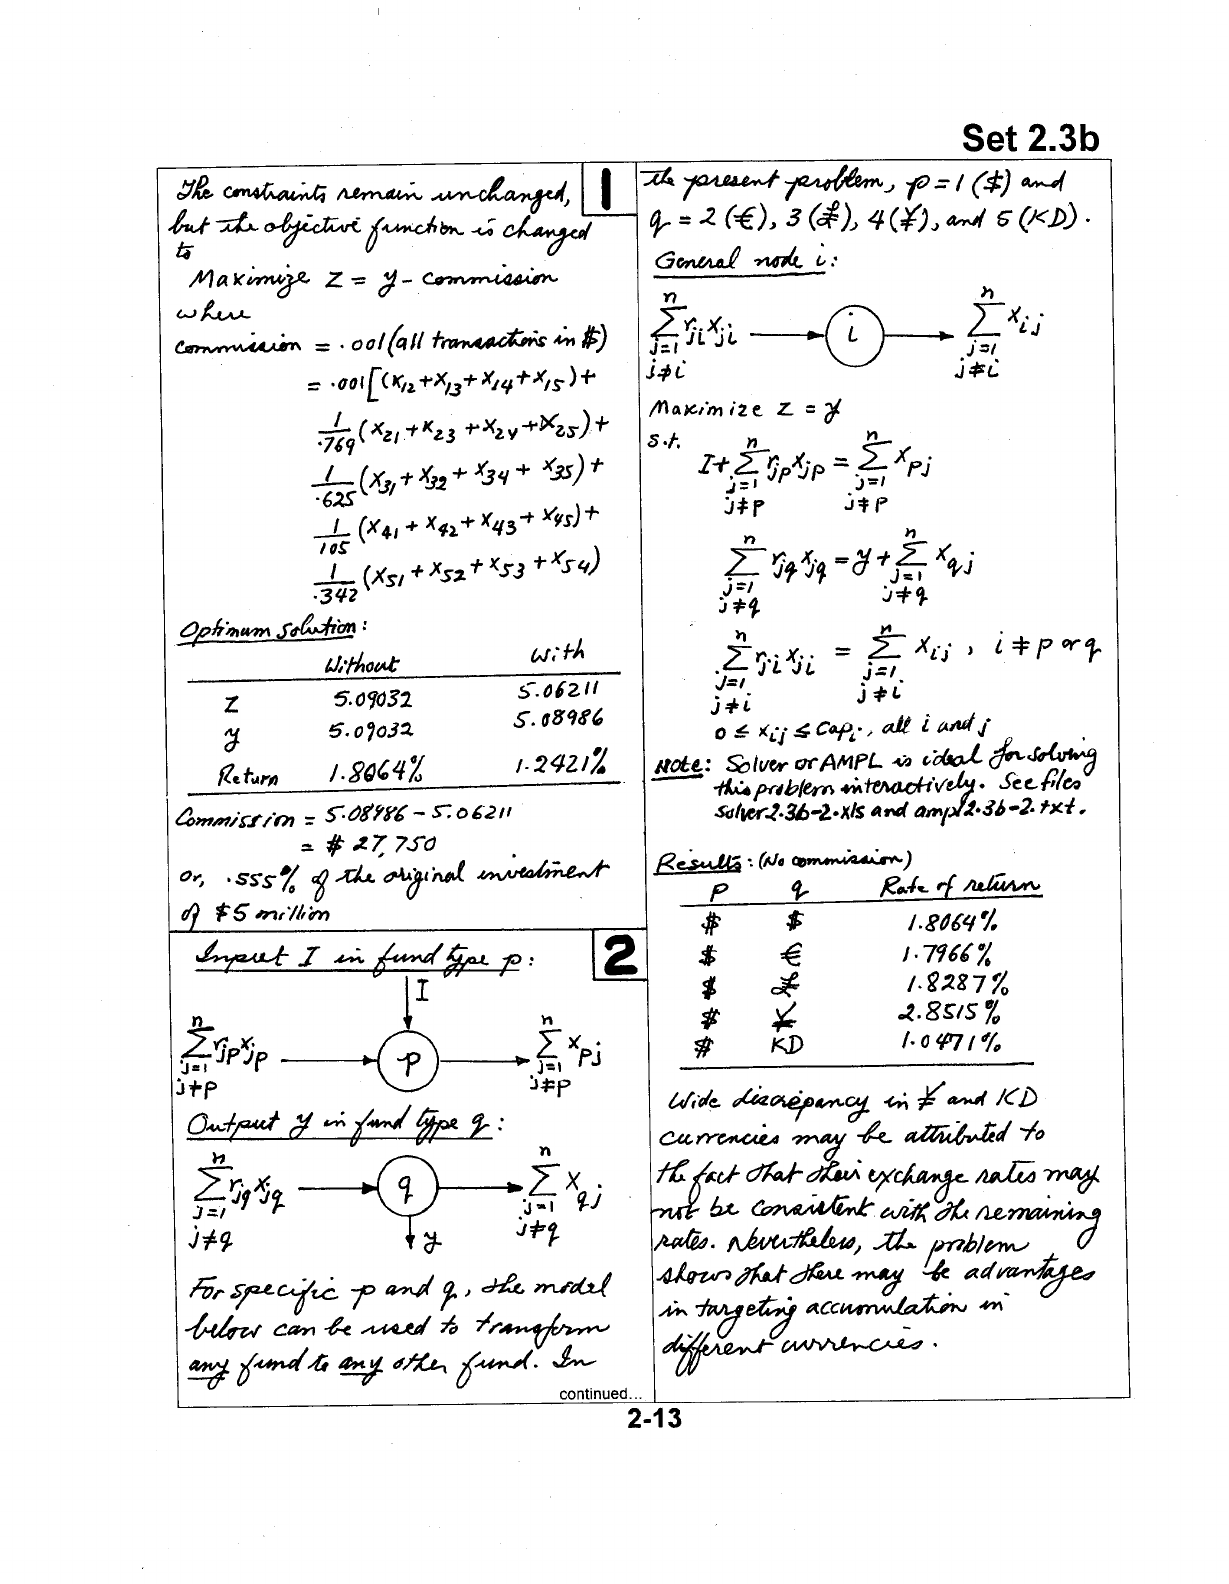 Set 2.3b
1
The constraints remain unchanged,
but the objective function is changed
to
Maximize Z = y - commission
where
commission = .001(all transactions in $)
= .001[(X12+X13+X14+X15)+
1/.769 (X21+X23+X24+X25)+
1/.625 (X31+X32+X34+X35)+
1/105 (X41+X42+X43+X45)+
1/.342 (X51+X52+X53+X54)
Optimum Solution:
Without With
Z 5.09032 5.06211
y 5.09032 5.08986
Return 1.8064% 1.2421%
Commission = 5.08986 - 5.06211
= $ 27,750
or, .555% of the original investment
of $5 million
2
Input I in fund type p:
I
n∑j=1, j≠p rjp xjp → p → n∑j=1, j≠p xpj
Output y in fund type q:
n∑j=1, j≠q rjq xjq → q → n∑j=1, j≠q xqj
y
For specific p and q, the model
below can be used to transform
any fund to any other fund. In
continued...
the present problem, p=1 ($) and
q = 2 (€), 3 (£), 4 (¥), and 5 (KD).
General node i:
n∑j=1, j≠i rji xji → i → n∑j=1, j≠i xij
Maximize Z = y
s.t.
I + n∑j=1, j≠p rjp xjp = n∑j=1, j≠p xpj
n∑j=1, j≠q rjq xjq = y + n∑j=1, j≠q xqj
n∑j=1, j≠i rji xji = n∑j=1, j≠i xij , i ≠ p or q
0 ≤ xij ≤ Capi, all i and j
Note: Solver or AMPL is ideal for solving
this problem interactively. See files
solver2.3b-2.xls and ampl2.3b-2.txt.
Results: (No commission)
p q Rate of return
$ $ 1.8064%
$ € 1.7966%
$ £ 1.8287%
$ ¥ 2.8515%
$ KD 1.0471%
Wide discrepancy in ¥ and KD
currencies may be attributed to
the fact that their exchange rates may
not be consistent with the remaining
rates. Nevertheless, the problem
shows that there may be advantages
in targeting accumulation in
different currencies.
2-13